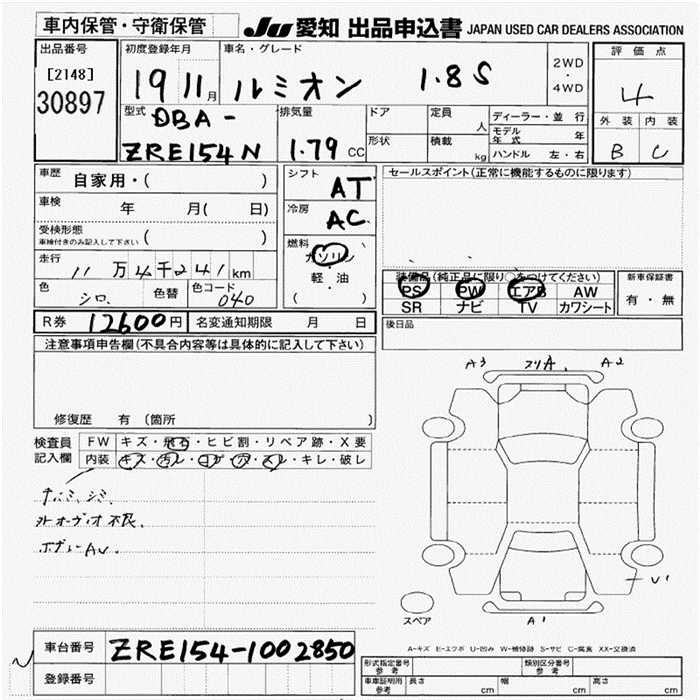 車内保管・守衛保管
JU 愛知 出品申込書 JAPAN USED CAR DEALERS ASSOCIATION
出品番号
[2148]
30897
初度登録年月
19 11月
車名・グレード
ルミオン 1.8S
2WD
・
4WD
評価点
4
外装 内装
B C
型式
DBA-
ZRE154N
排気量
1.79 CC
ドア
形状
定員
人
積載
kg
ディーラー・並行
モデル年式 年
ハンドル 左・右
車歴
自家用・( )
車検
年 月( 日)
受検形態
車検付きのみ記入して下さい ( )
走行
11万4千241km
色
シロ.
色替
色コード
040
シフト
AT
冷房
AC
燃料
ガソリン
軽・油
( )
セールスポイント(正常に機能するものに限ります)
装備品(純正品に限り○をつけてください)
PS PW エアB AW
SR ナビ TV カワシート
新車保証書
有・無
R券 12600円 名変通知期限 月 日
後日品
注意事項申告欄(不具合内容等は具体的に記入して下さい)
修復歴 有 (箇所 )
検査員
記入欄
FW キズ・飛石・ヒビ割・リペア跡・X要
内装 キズ・汚レ・コゲ・穴・スレ・キレ・破レ
シミ.
外オーディオ不良.
ボディーAU.
A3 A. A2
U1
スペア
A1
A-キズ E-エクボ U-凹み W-補修跡 S-サビ C-腐食 XX-交換済
車台番号 ZRE154-1002850
登録番号
形式指定番号
参考
類別区分番号
参考
車庫証明用
参考
長さ cm
幅 cm
高さ cm